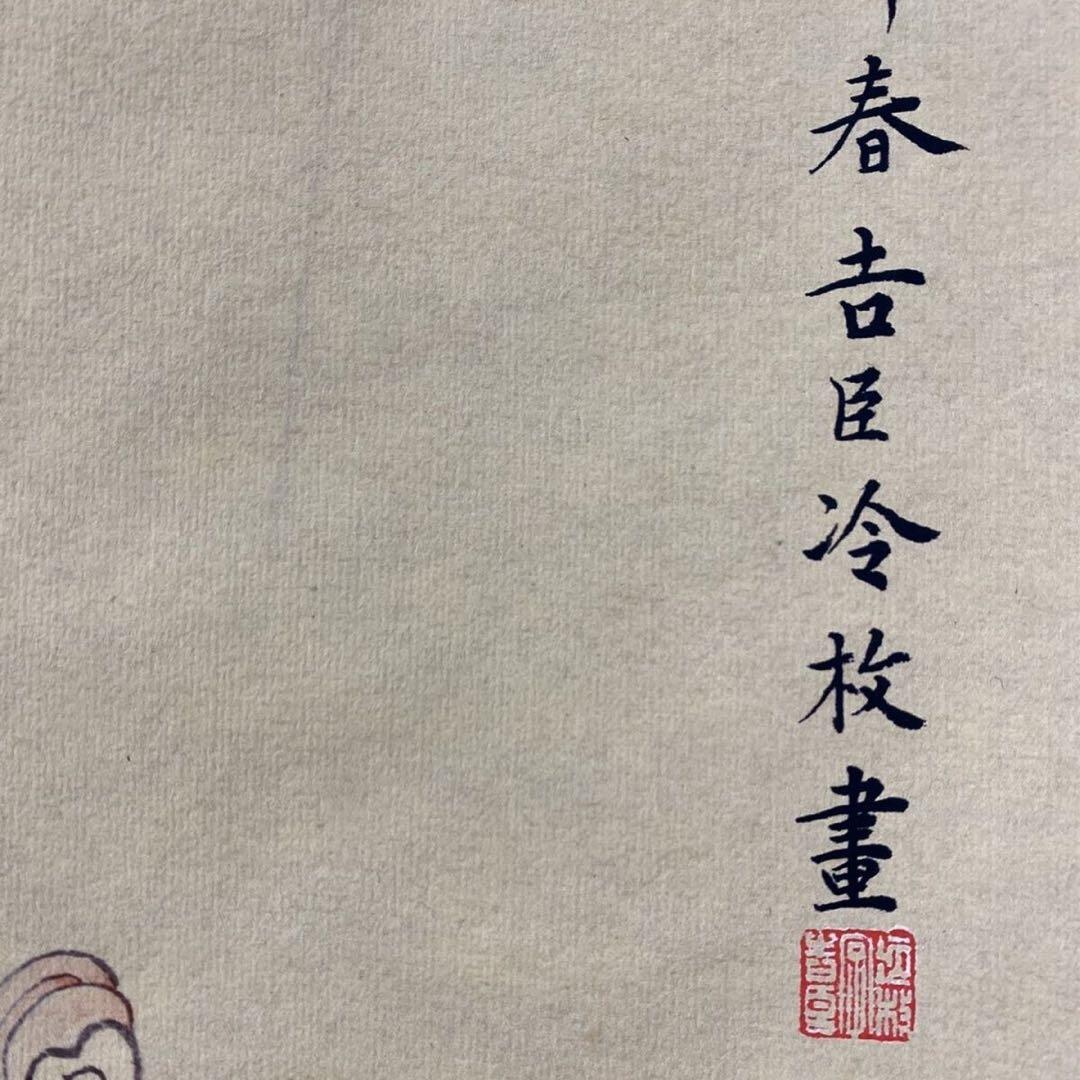 春吉臣冷枚畫